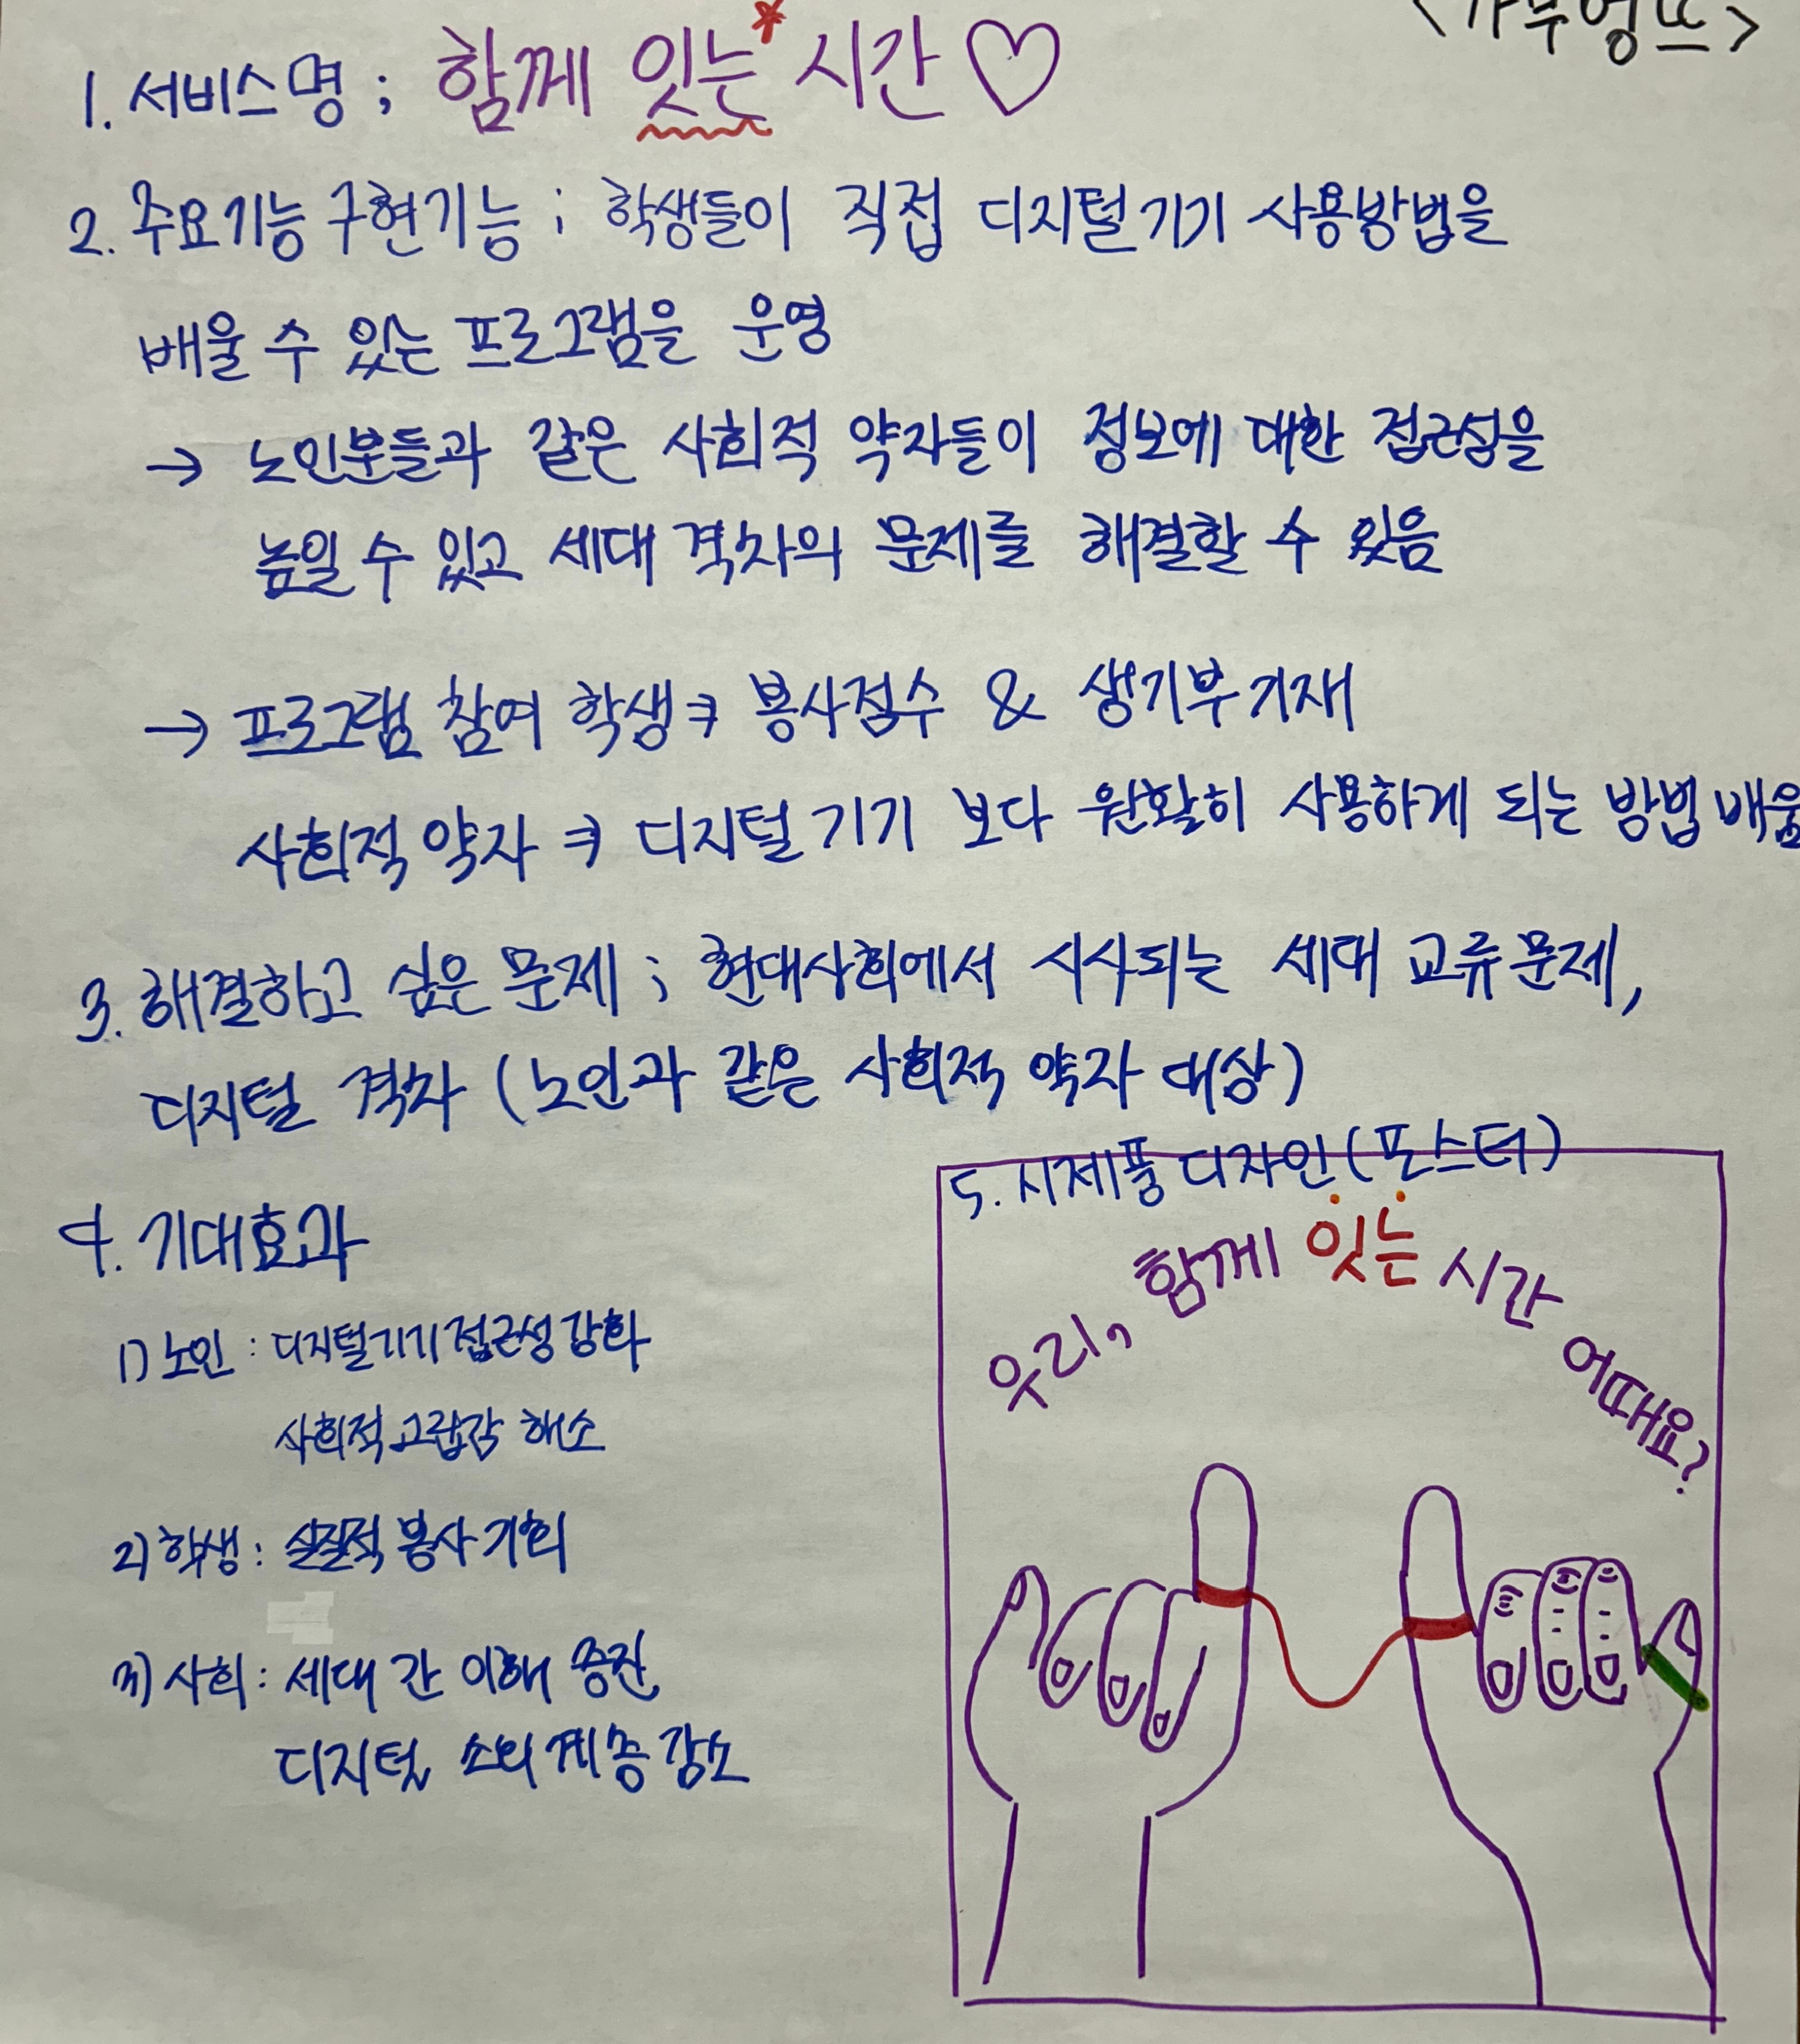 <가부엉뜨>
1. 서비스명 ; 함께 잇는* 시간♡
2. 주요기능 구현기능 ; 학생들이 직접 디지털기기 사용방법을
배울 수 있는 프로그램을 운영
→ 노인분들과 같은 사회적 약자들이 정보에 대한 접근성을
높일 수 있고 세대 격차의 문제를 해결할 수 있음
→ 프로그램 참여 학생 ⇒ 봉사점수 & 생기부기재
사회적 약자 ⇒ 디지털 기기 보다 원활히 사용하게 되는 방법 배움
3. 해결하고 싶은 문제 ; 현대사회에서 시사되는 세대 교류문제,
디지털 격차 (노인과 같은 사회적 약자 대상)
4. 기대효과
1) 노인 : 디지털기기 접근성 강화
사회적 고립감 해소
2) 학생 : 실질적 봉사 기회
3) 사회 : 세대 간 이해 증진
디지털 소외계층 감소
5. 시제품 디자인 (포스터)
우리, 함께 잇는 시간 어때요?